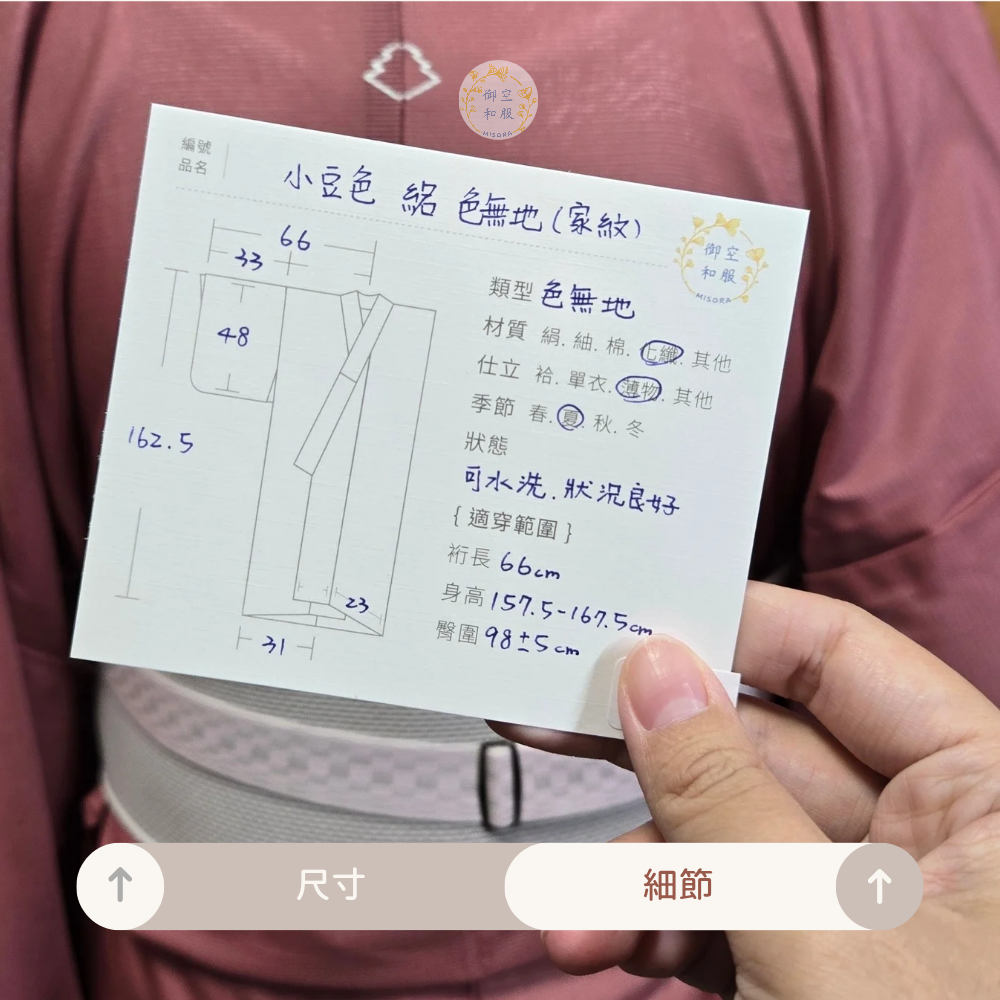 御空
和服
MISORA
編號
品名
小豆色 絽 色無地(家紋)
御空
和服
MISORA
66
33
48
162.5
23
31
類型 色無地
材質 絹. 紬. 棉. 化纖. 其他
仕立 袷. 單衣. 薄物. 其他
季節 春. 夏. 秋. 冬
狀態
可水洗.狀況良好
{ 適穿範圍 }
裄長 66cm
身高 157.5-167.5cm
臀圍 98±5cm
↑ 尺寸 細節 ↑